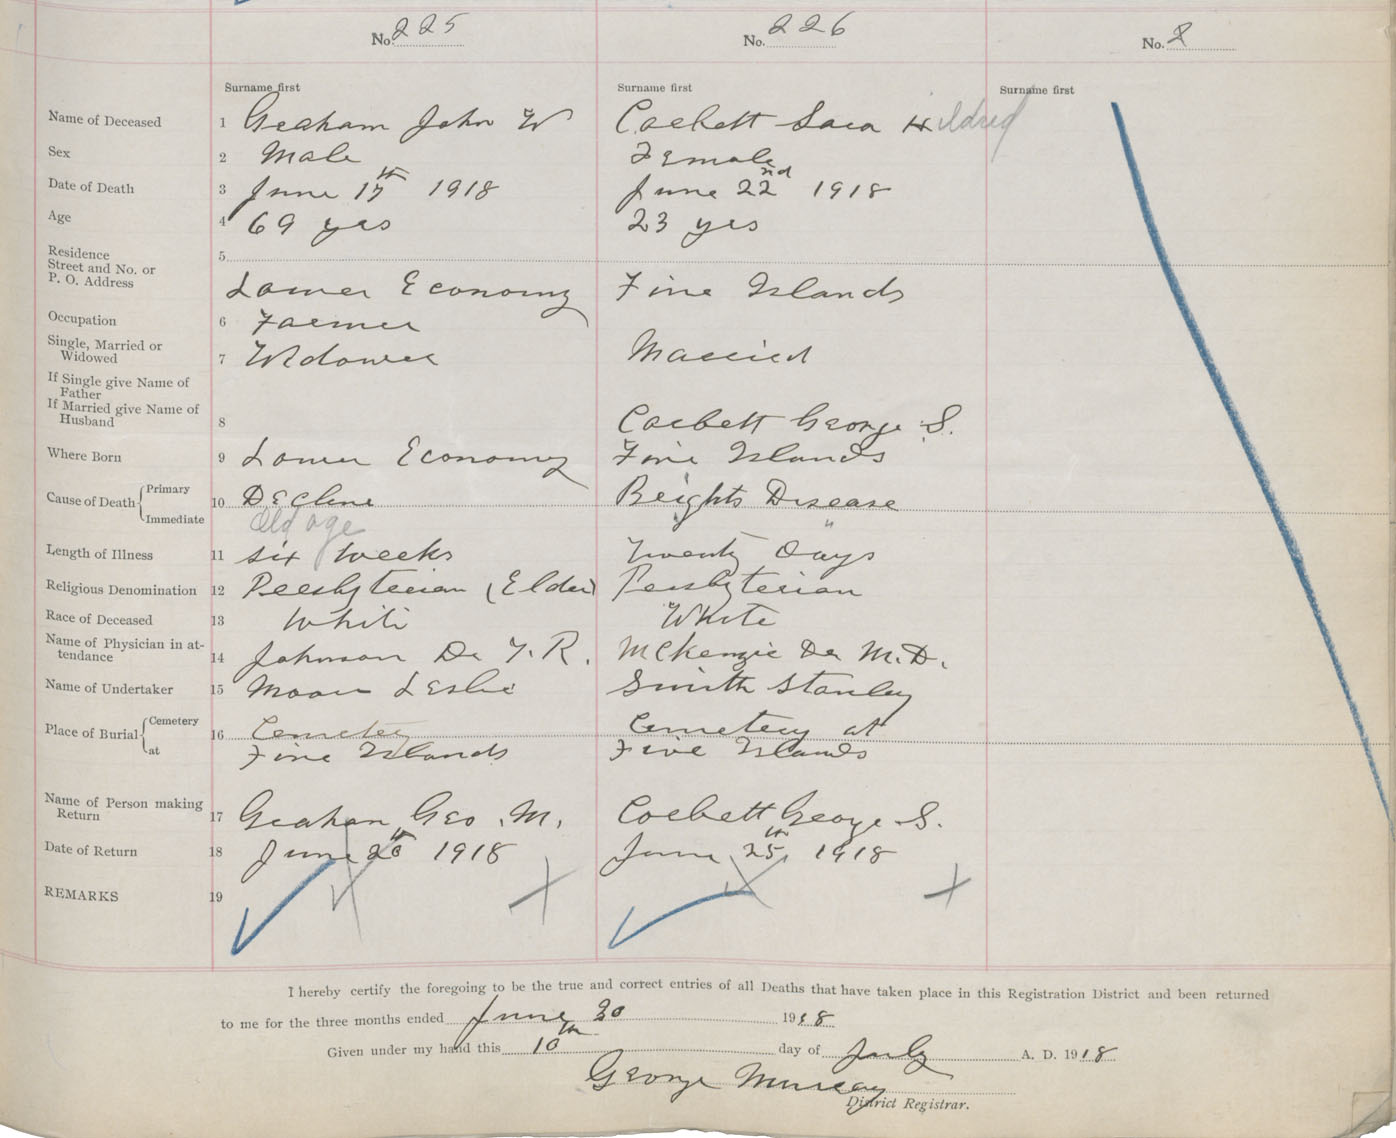 No. 225 No. 226 No. 2
Surname first Surname first Surname first
Name of Deceased 1 Graham John W Corbett Sara Hildred
Sex 2 Male Female
Date of Death 3 June 17th 1918 June 22nd 1918
Age 4 69 yrs 23 yrs
Residence
Street and No. or 5
P. O. Address Lower Economy Five Islands
Occupation 6 Farmer
Single, Married or
Widowed 7 Widower Married
If Single give Name of
Father
If Married give Name of
Husband 8 Corbett George S.
Where Born 9 Lower Economy Five Islands
Cause of Death { Primary
10 Decline Brights Disease
Immediate old age "
Length of Illness 11 six weeks Twenty Days
Religious Denomination 12 Presbyterian (Elder) Presbyterian
Race of Deceased 13 White White
Name of Physician in at-
tendance 14 Johnson Dr T. R. McKenzie Dr M.D.
Name of Undertaker 15 Moore Leslie Smith Stanley
Place of Burial { Cemetery
16 Cemetery Cemetery at
at Five Islands Five Islands
Name of Person making
Return 17 Graham Geo. M. Corbett George S.
Date of Return 18 June 20th 1918 June 25th 1918
REMARKS 19
I hereby certify the foregoing to be the true and correct entries of all Deaths that have taken place in this Registration District and been returned
to me for the three months ended June 30 1918
Given under my hand this 10th day of July A. D. 1918
George Murray
District Registrar.